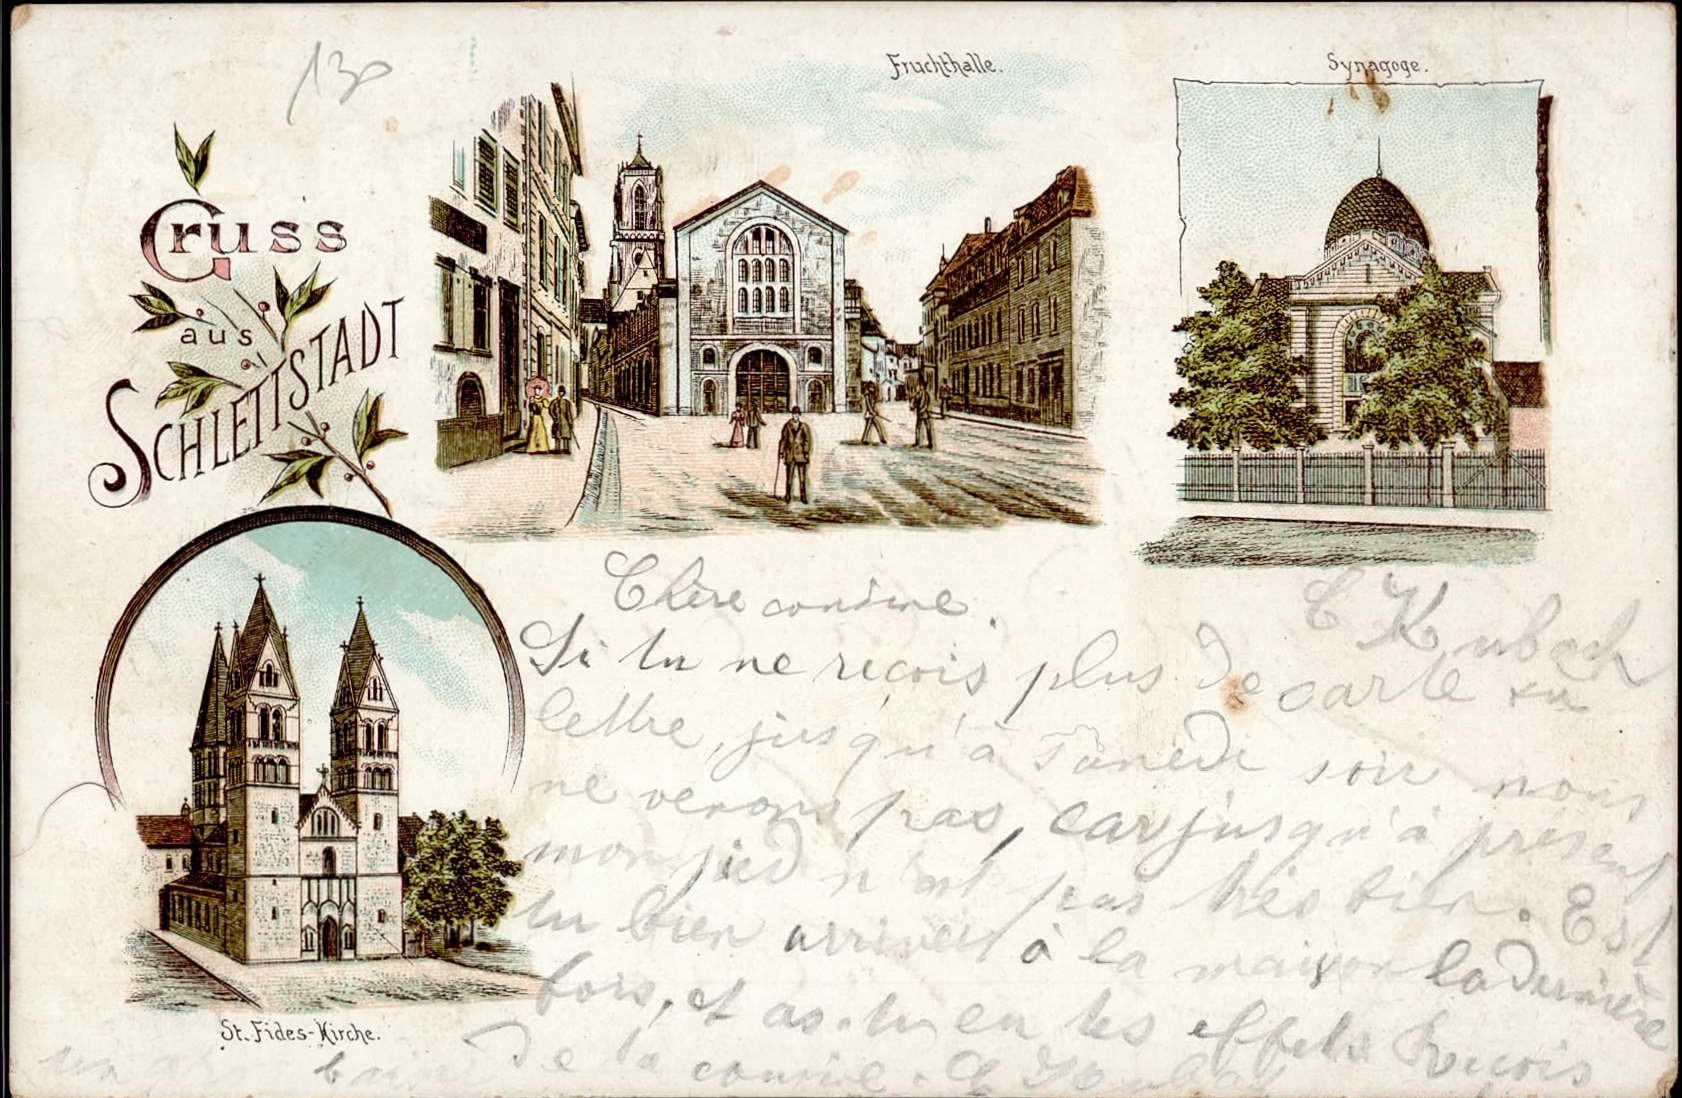 130
Fruchthalle.
Synagoge.
Gruss
aus
SCHLETTSTADT
St. Fides-Kirche.
Chère cousine.
C Kubach
Si tu ne reçois plus de carte ou
lettre, jusqu'à samedi soir nous
ne verons pas, car jusqu'à présent
mon pied n'est pas très bien. Est
tu bien arrivée à la maison la dernière
fois, et as-tu eu tes effets Reçois
un gros baiser de ta cousine. C Kubach